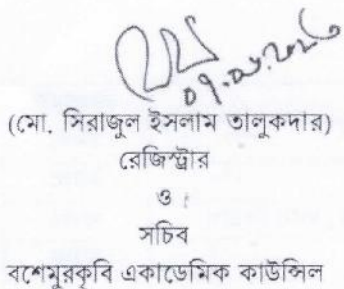 (মো. সিরাজুল ইসলাম তালুকদার)
রেজিস্ট্রার
ও
সচিব
বশেমুরকৃবি একাডেমিক কাউন্সিল